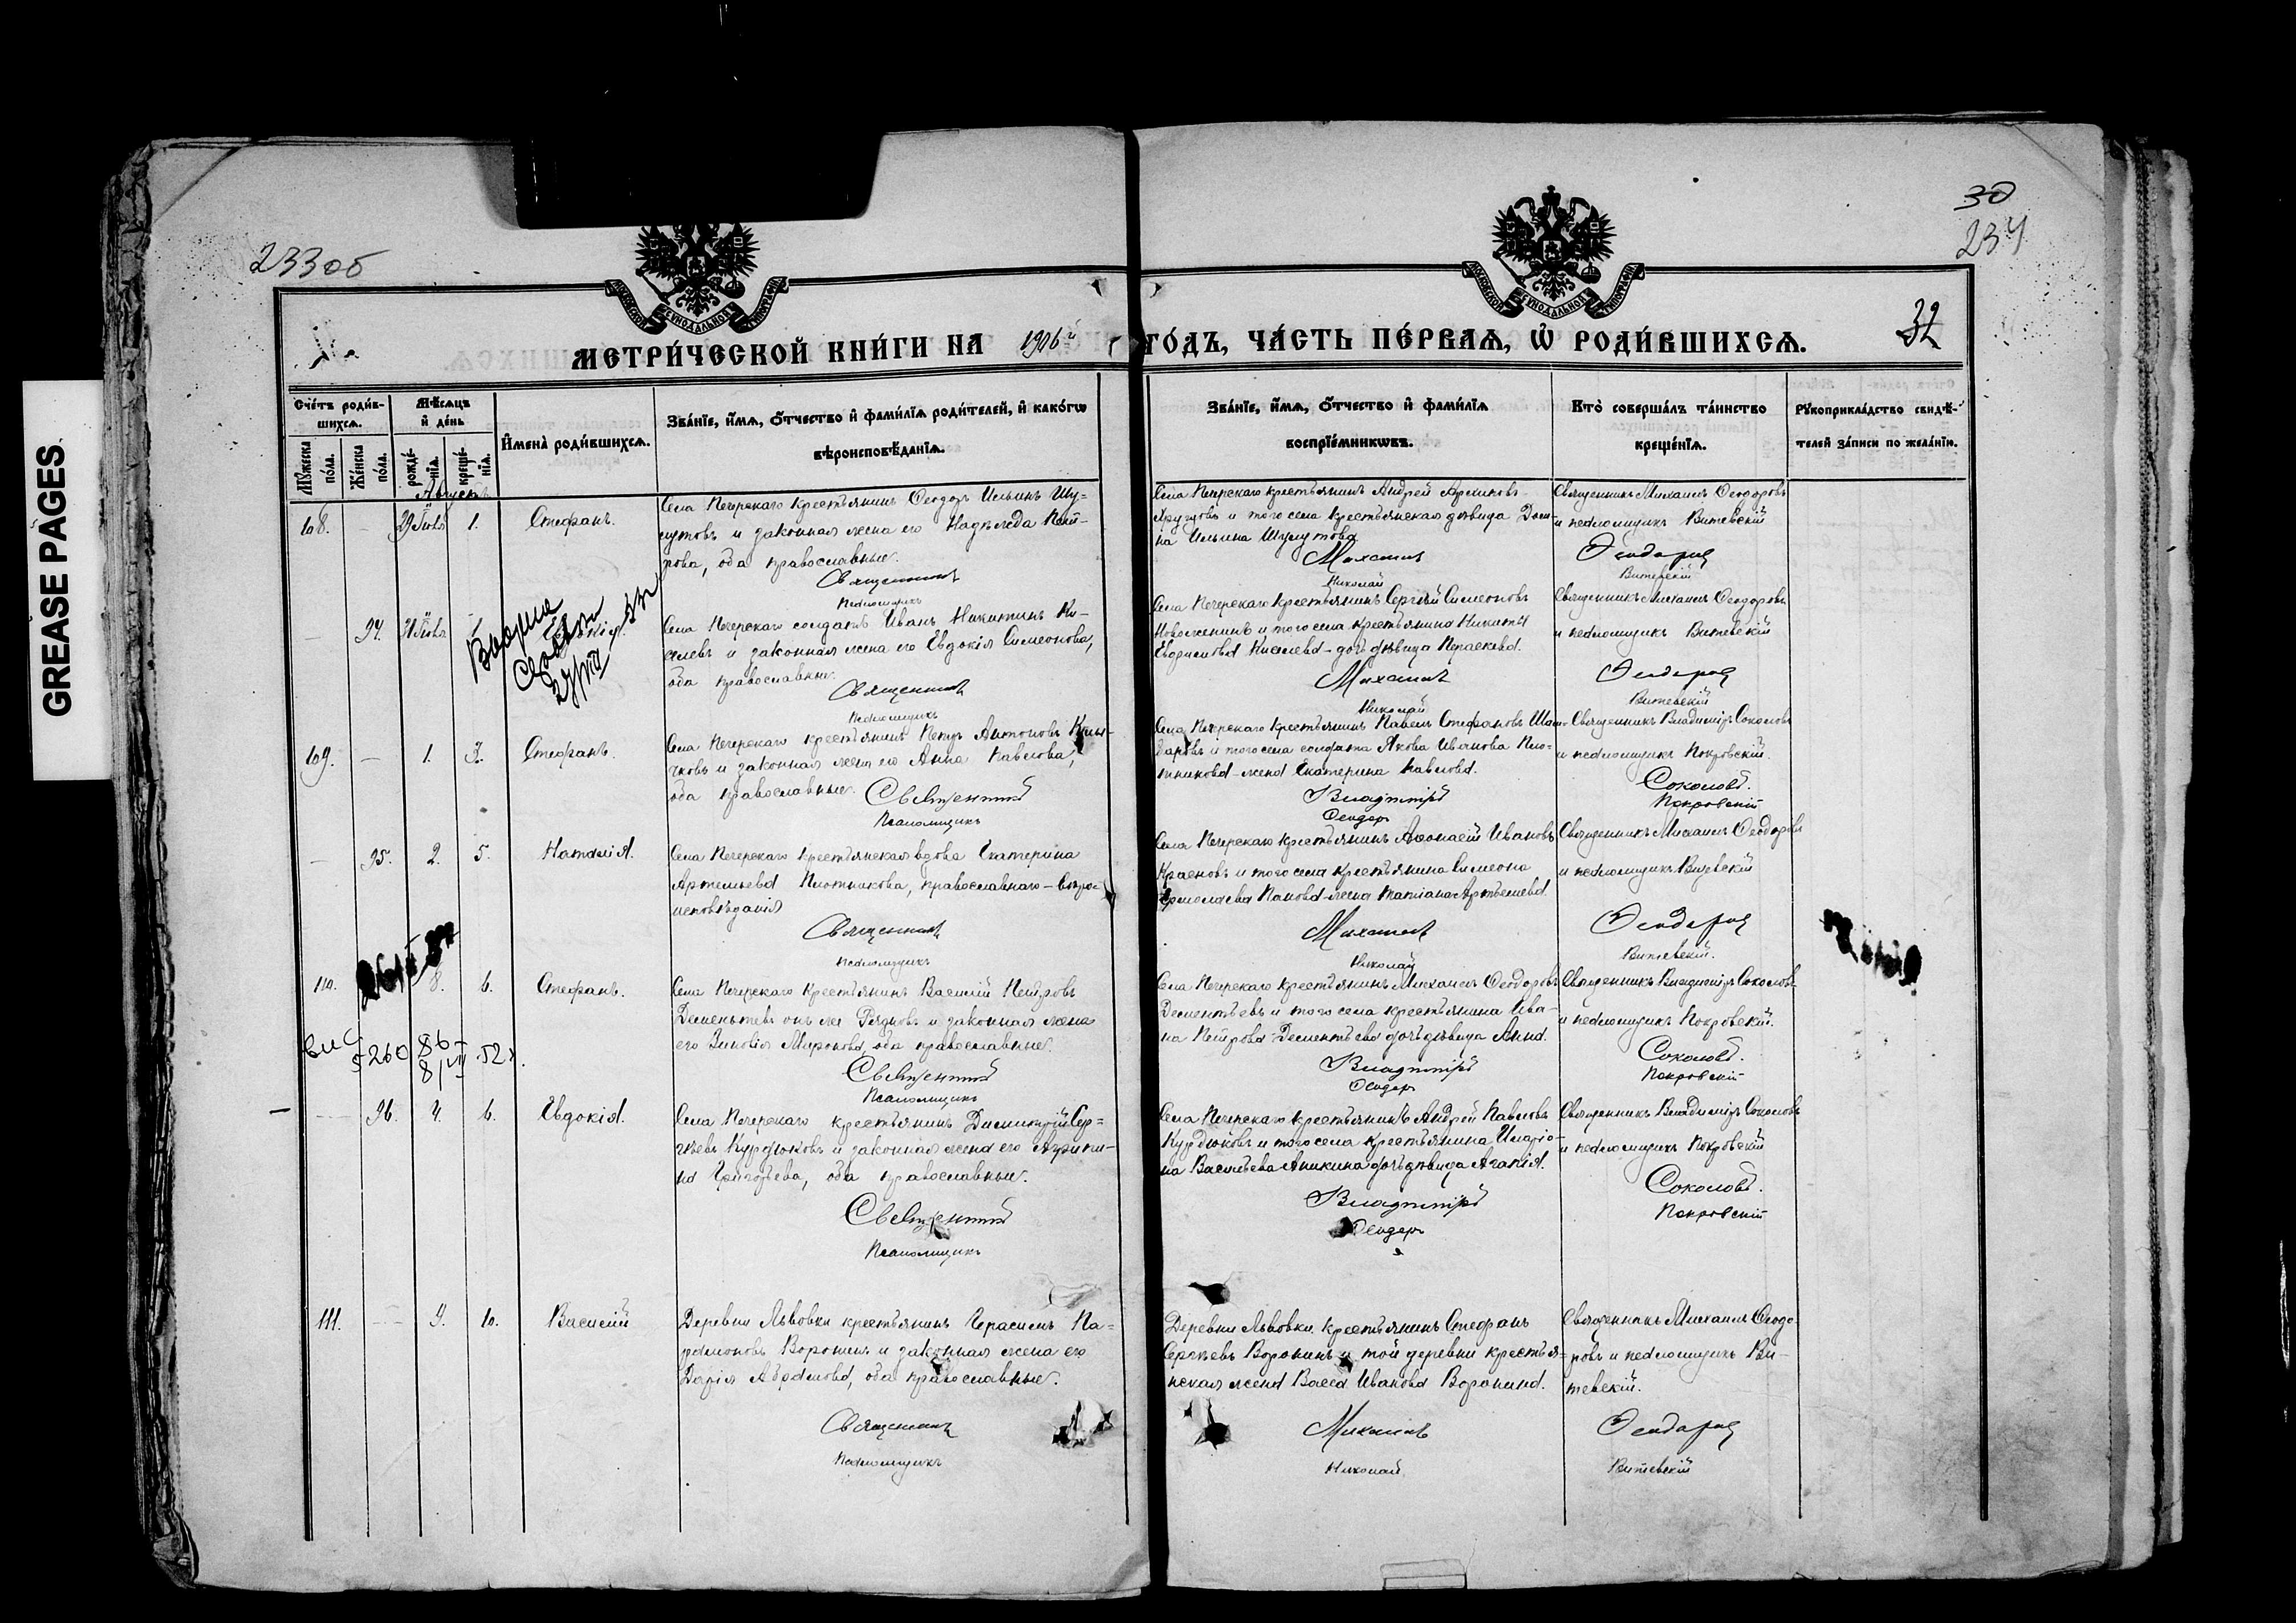 GREASE PAGES
233об
30
234
32
МОСКОВСКОЙ СѴНОДАЛЬНОЙ ТИПОГРАФІИ
МОСКОВСКОЙ СѴНОДАЛЬНОЙ ТИПОГРАФІИ
МЕТРИ́ЧЕСКОЙ КНИ́ГИ НА 1906й ГО́ДЪ, ЧА́СТЬ ПЕ́РВАѦ, Ѡ҆ РОДИ́ВШИХСѦ.
Сче́тъ роди́в-
шихсѧ.
Мꙋ́жеска
по́ла.
Же́нска
по́ла.
Мѣ́сѧцъ
и҆ де́нь
рожде́-
нїѧ.
креще́-
нїѧ.
И҆мена̀ роди́вшихсѧ.
Зва́нїе, и҆́мѧ, ѻ҆́тчество и҆ фами́лїѧ роди́телей, и҆ како́гѡ
вѣроисповѣ́данїѧ.
Зва́нїе, и҆́мѧ, ѻ҆́тчество и҆ фами́лїѧ
воспрїе́мникѡвъ.
Кто̀ соверша́лъ та́инство
креще́нїѧ.
Рꙋкоприкла́дство свидѣ́-
телей за́писи по жела́нїю.
Августъ
108. — 29 Іюля 1. Стефанъ.
Села Печерскаго крестьянинъ Ѳеодоръ Ильинъ Шу-
гутовъ и законная жена его Надежда Пет-
рова, оба православные.
Священникъ
Псаломщикъ
Села Печерскаго крестьянинъ Андрей
и того села крестьянская дѣвица Дом-
на Ильина Шугутова
Михаилъ
Николай
Священникъ Михаилъ Ѳеодоровъ
и псаломщикъ Витевскій
Ѳеодоровъ
Витевскій
— 94. Іюля
Села Печерскаго солдатъ Иванъ Никитинъ Ки-
селевъ и законная жена его Евдокія Симеонова,
оба православные.
Священникъ
Псаломщикъ
Села Печерскаго крестьянинъ Сергѣй Симеоновъ
Новоженинъ и того села крестьянина Никиты
Киселева – дочь дѣвица Параскева.
Михаилъ
Николай
Священникъ Михаилъ Ѳеодоровъ
и псаломщикъ Витевскій
Ѳеодоровъ
Витевскій
109. — 1. 3. Стефанъ.
Села Печерскаго крестьянинъ Петръ Антоновъ
и законная жена его Анна Павлова,
оба православные.
Священникъ
Псаломщикъ
Села Печерскаго крестьянинъ Павелъ Стефановъ
и того села солдата Якова Иванова Плот-
никова – жена Екатерина Павлова.
Владиміръ
Ѳеодоръ
Священникъ Владиміръ Соколовъ
и псаломщикъ Покровскій.
Соколовъ.
Покровскій
— 95. 2. 5. Наталія.
Села Печерскаго крестьянская вдова Екатерина
Артемьева Плотникова, православнаго – вѣро-
исповѣданія
Священникъ
Псаломщикъ
Села Печерскаго крестьянинъ Аѳонасій Ивановъ
Красновъ и того села крестьянина Симеона
Ермолаева Панова – жена Татіана Артемьева
Михаилъ
Николай
Священникъ Михаилъ Ѳеодоровъ
и псаломщикъ Витевскій
Ѳеодоровъ
Витевскій.
110. 6. Стефанъ.
Села Печерскаго крестьянинъ Василій Петровъ
Дементьевъ онъ же и законная жена
его Зиновія Миронова, оба православные.
Священникъ
Псаломщикъ
Села Печерскаго крестьянинъ Михаилъ Ѳеодоровъ
Дементьевъ и того села крестьянина Ива-
на Петрова Дементьева дочь дѣвица Анна.
Владиміръ
Ѳеодоръ
Священникъ Владиміръ Соколовъ
и псаломщикъ Покровскій.
Соколовъ.
Покровскій
— 96. 4. 6. Евдокія.
Села Печерскаго крестьянинъ Димитрій Сер-
гѣевъ Курдюковъ и законная жена его Агрипи-
на Григорьева, оба православные.
Священникъ
Псаломщикъ
Села Печерскаго крестьянинъ Андрей Павловъ
Курдюковъ и того села крестьянина Иларіо-
на Васильева Аникина дочь дѣвица Агапія.
Владиміръ
Ѳеодоръ
Священникъ Владиміръ Соколовъ
и псаломщикъ Покровскій
Соколовъ.
Покровскій
111. — 9. 10. Василій
Деревни Львовки крестьянинъ Герасимъ Па-
рамоновъ Воронинъ и законная жена его
Дарія Абрамова, оба православные.
Священникъ
Псаломщикъ
Деревни Львовки крестьянинъ Стефанъ
Сергѣевъ Воронинъ и той деревни крестья-
нская жена Васса Иванова Воронина.
Михаилъ
Николай
Священникъ Михаилъ Ѳеодо-
ровъ и псаломщикъ Ви-
тевскій.
Ѳеодоровъ
Витевскій